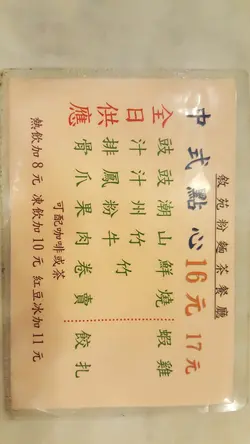 敘苑粉麵茶餐廳
中式點心16元 17元
全日供應
豉汁排骨
豉汁鳳爪
潮州粉果
山竹牛肉
鮮竹卷
燒賣
蝦餃
雞扎
可配咖啡或茶
熱飲加8元 凍飲加10元 紅豆冰加11元